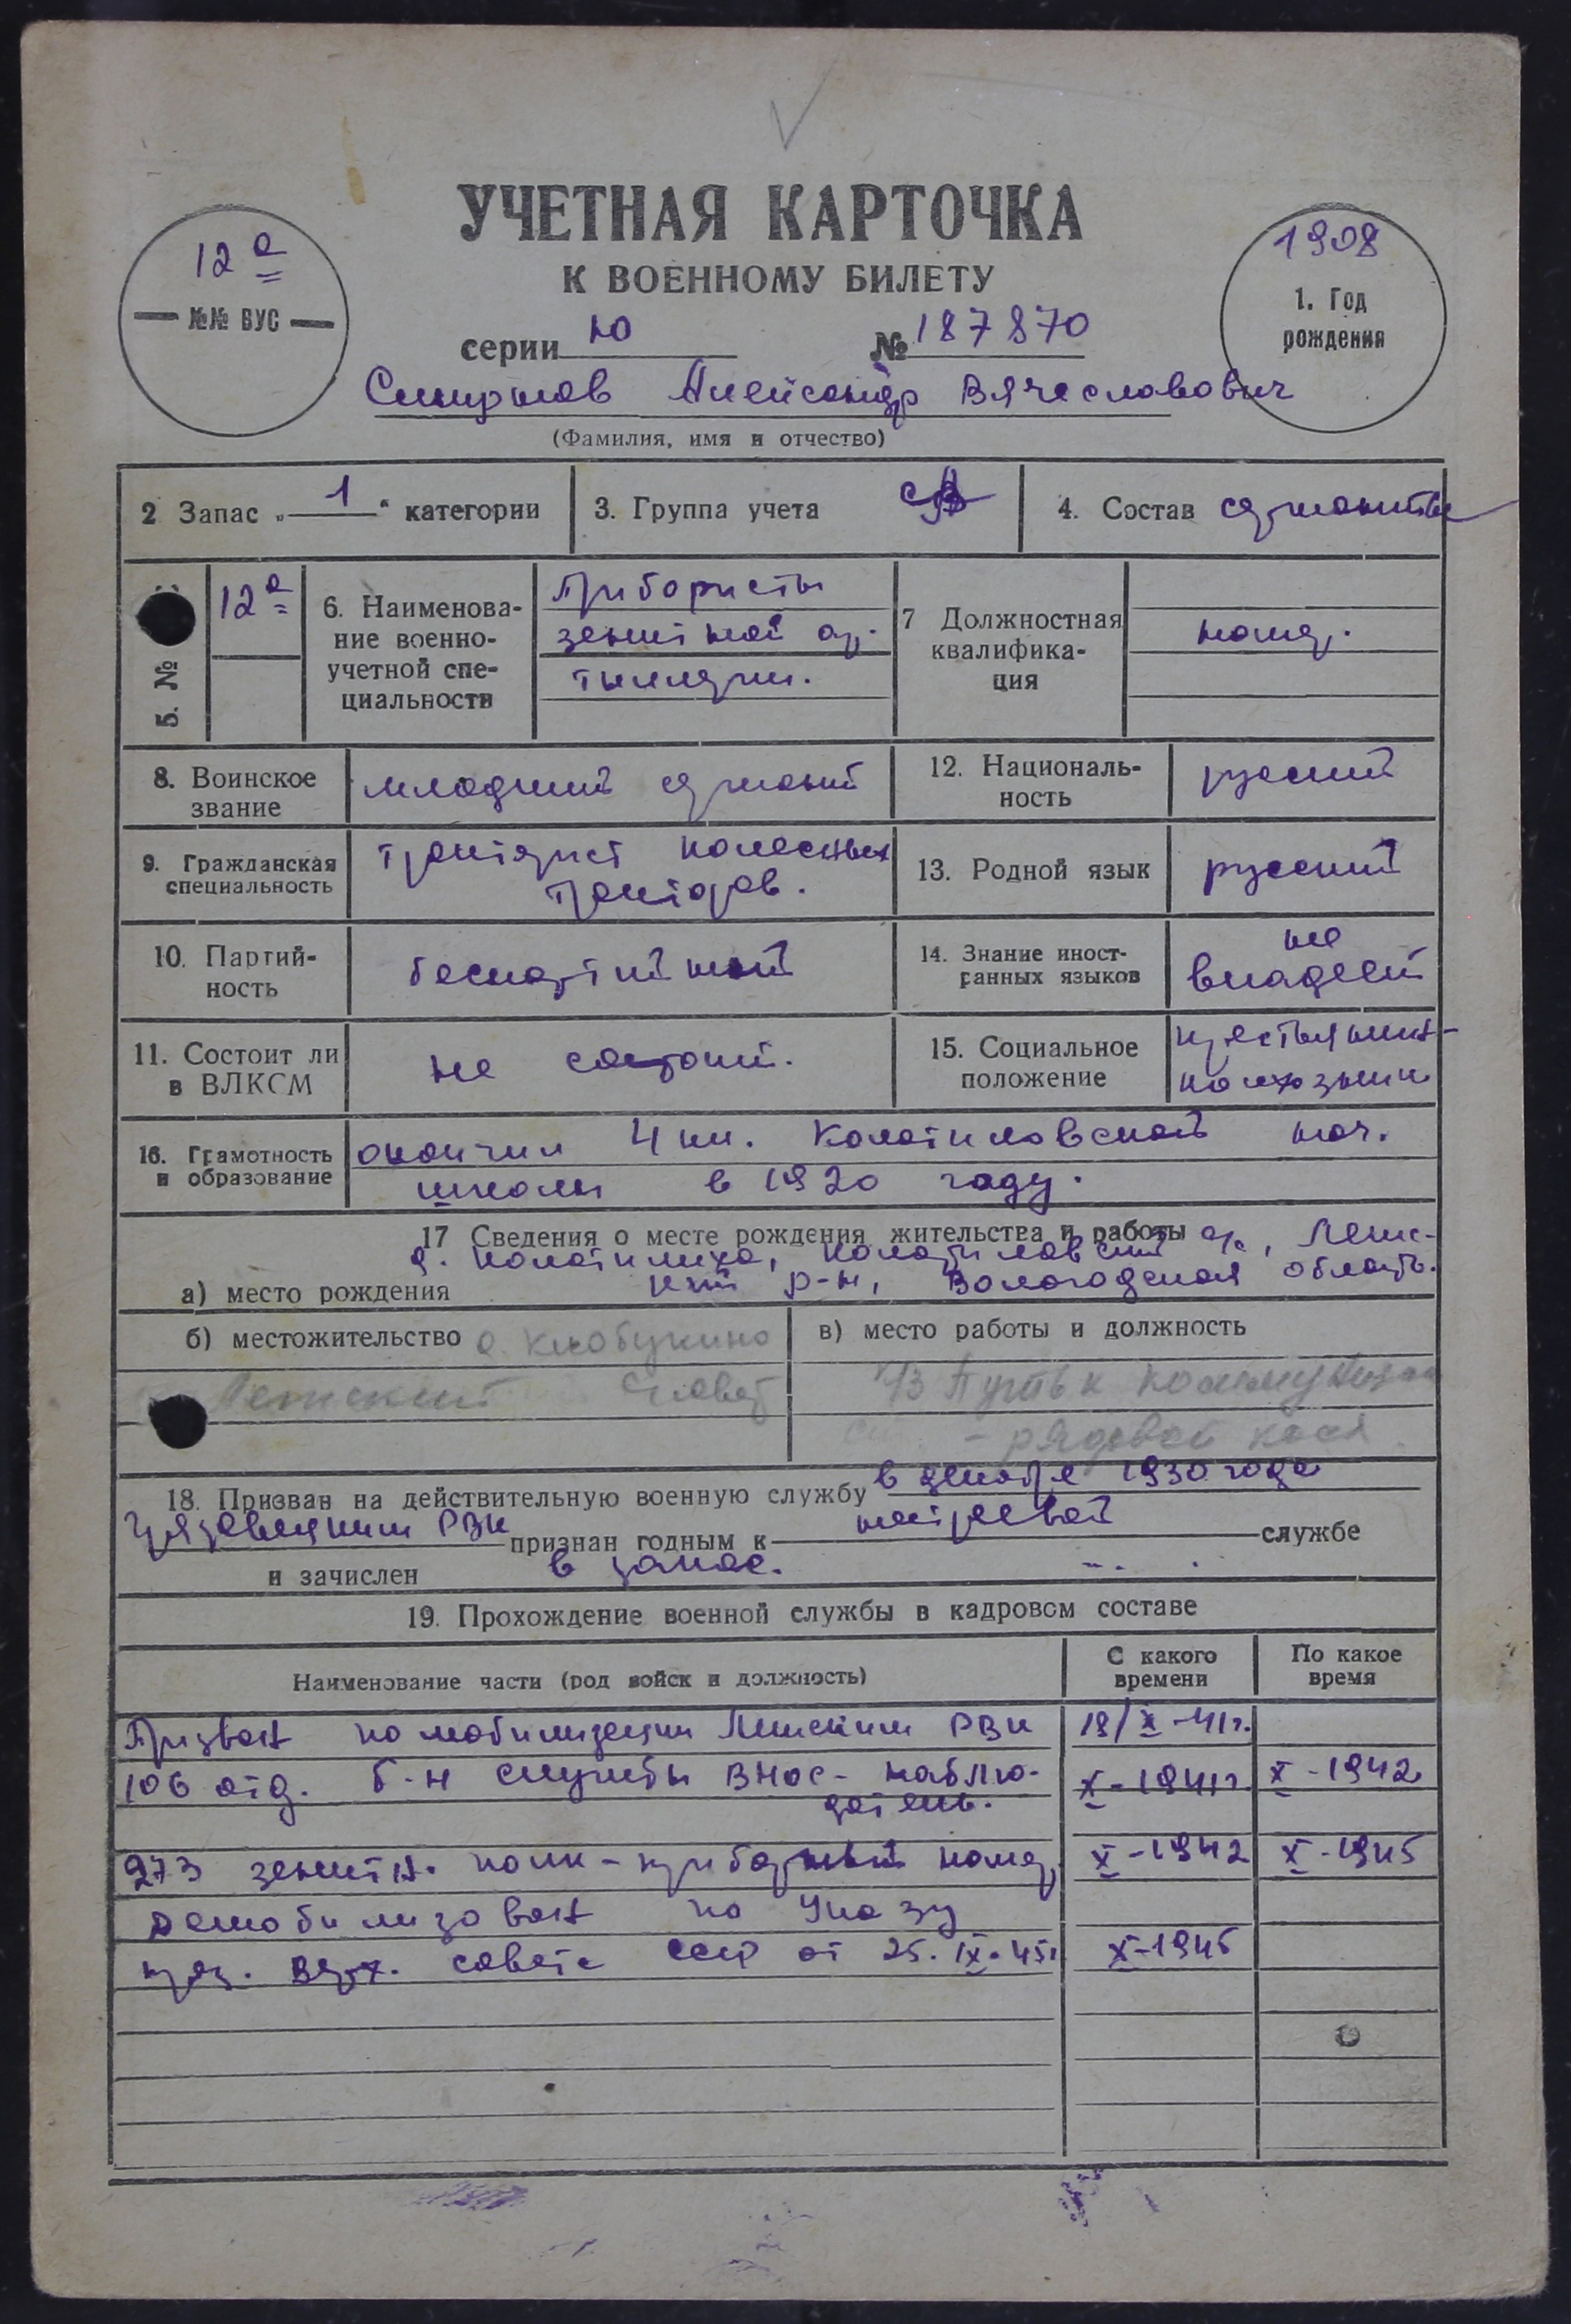 УЧЕТНАЯ КАРТОЧКА
К ВОЕННОМУ БИЛЕТУ
12а
№№ ВУС
1908
1. Год
рождения
серии Ю № 187870
Смирнов Александр Вячеславович
(Фамилия, имя и отчество)
2 Запас „1“ категории
3. Группа учета СА
4. Состав сержантск
5. №
12а
6. Наименова-
ние военно-
учетной спе-
циальности
Прибористы
зенитной ар-
тиллерии.
7 Должностная
квалифика-
ция
номер.
8. Воинское
звание
младший сержант
12. Националь-
ность
русский
9. Гражданская
специальность
тракторист колесных
тракторов.
13. Родной язык
русский
10. Партий-
ность
беспартийный
14. Знание иност-
ранных языков
не
владеет
11. Состоит ли
в ВЛКСМ
не состоит.
15. Социальное
положение
крестьянин-
колхозник
16. Грамотность
и образование
окончил 4 кл. Колотиловской нач.
школы в 1920 году.
17 Сведения о месте рождения жительства и работы
д. Колотилиха, Колотиловский с/с, Леж-
а) место рождения
кий р-н, Вологодская область.
б) местожительство д. Клобукино
Лежский С/совет
в) место работы и должность
К/з Путь к коммунизму
- рядовой колх.
18. Призван на действительную военную службу в декабре 1930 года
Грязовецким РВК признан годным к нестроевой службе
и зачислен в запас.
19. Прохождение военной службы в кадровом составе
Наименование части (род войск и должность)
С какого
времени
По какое
время
Призван по мобилизации Лежским РВК 18/X-41г.
106 отд. б-н службы ВНОС - наблю- X-1941г. X-1942
датель.
273 зенитн. полк - приборный номер X-1942 X-1945
Демобилизован по Указу
през. Верх. совета СССР от 25.IX-45г X-1945